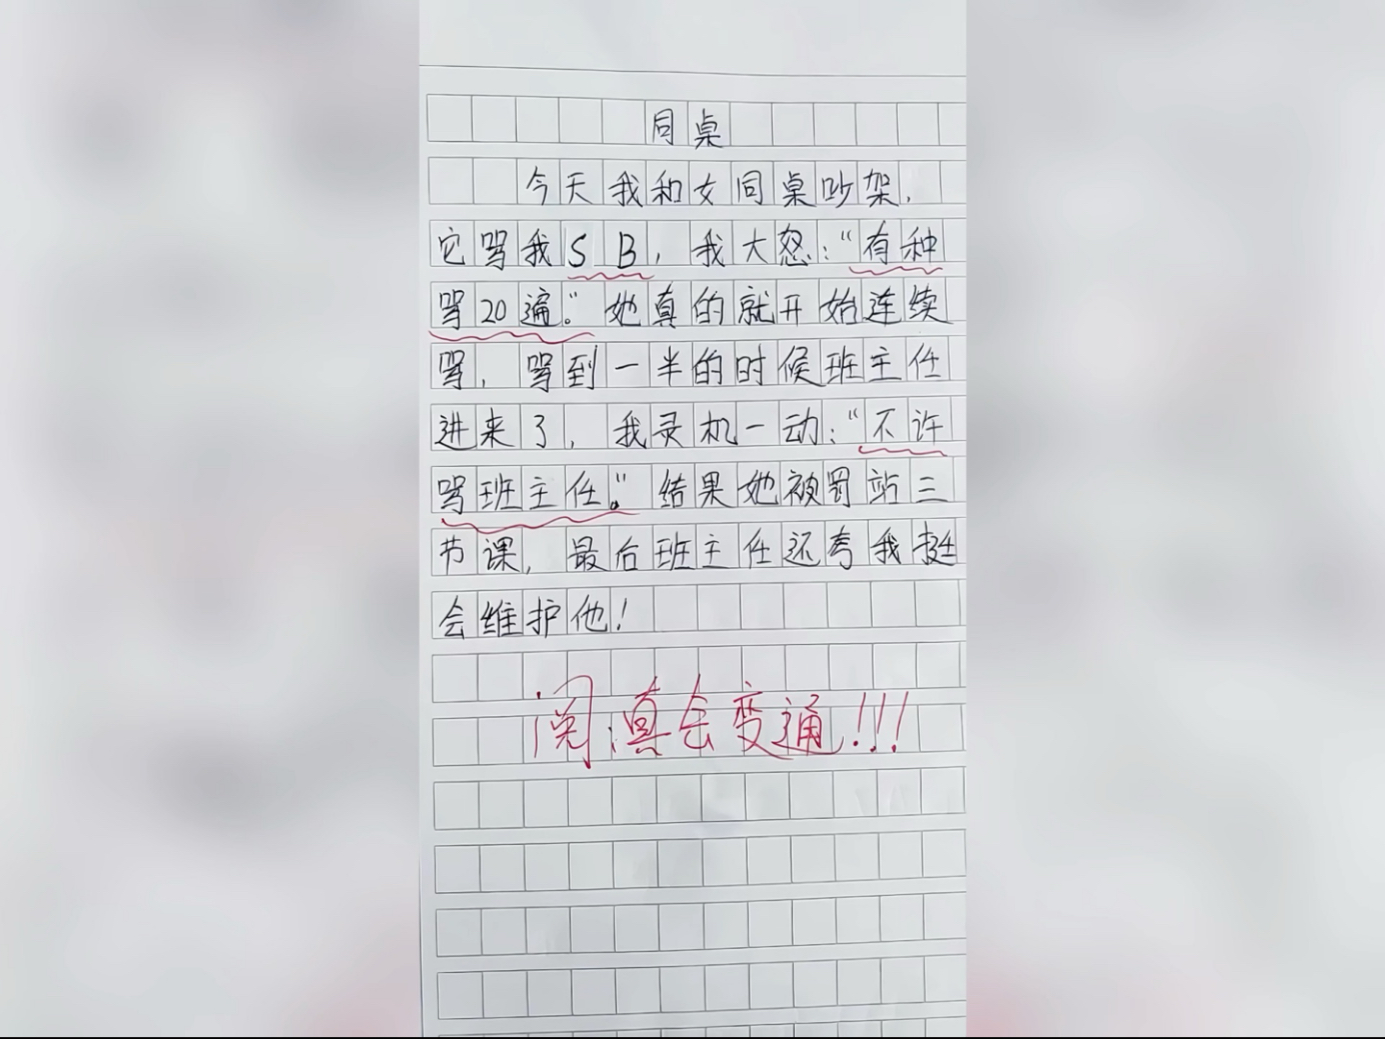 同桌
今天我和女同桌吵架,
它骂我SB,我大怒:“有种
骂20遍。”她真的就开始连续
骂,骂到一半的时候班主任
进来了,我灵机一动:“不许
骂班主任。”结果她被罚站三
节课,最后班主任还夸我挺
会维护他!
阅:真会变通!!!